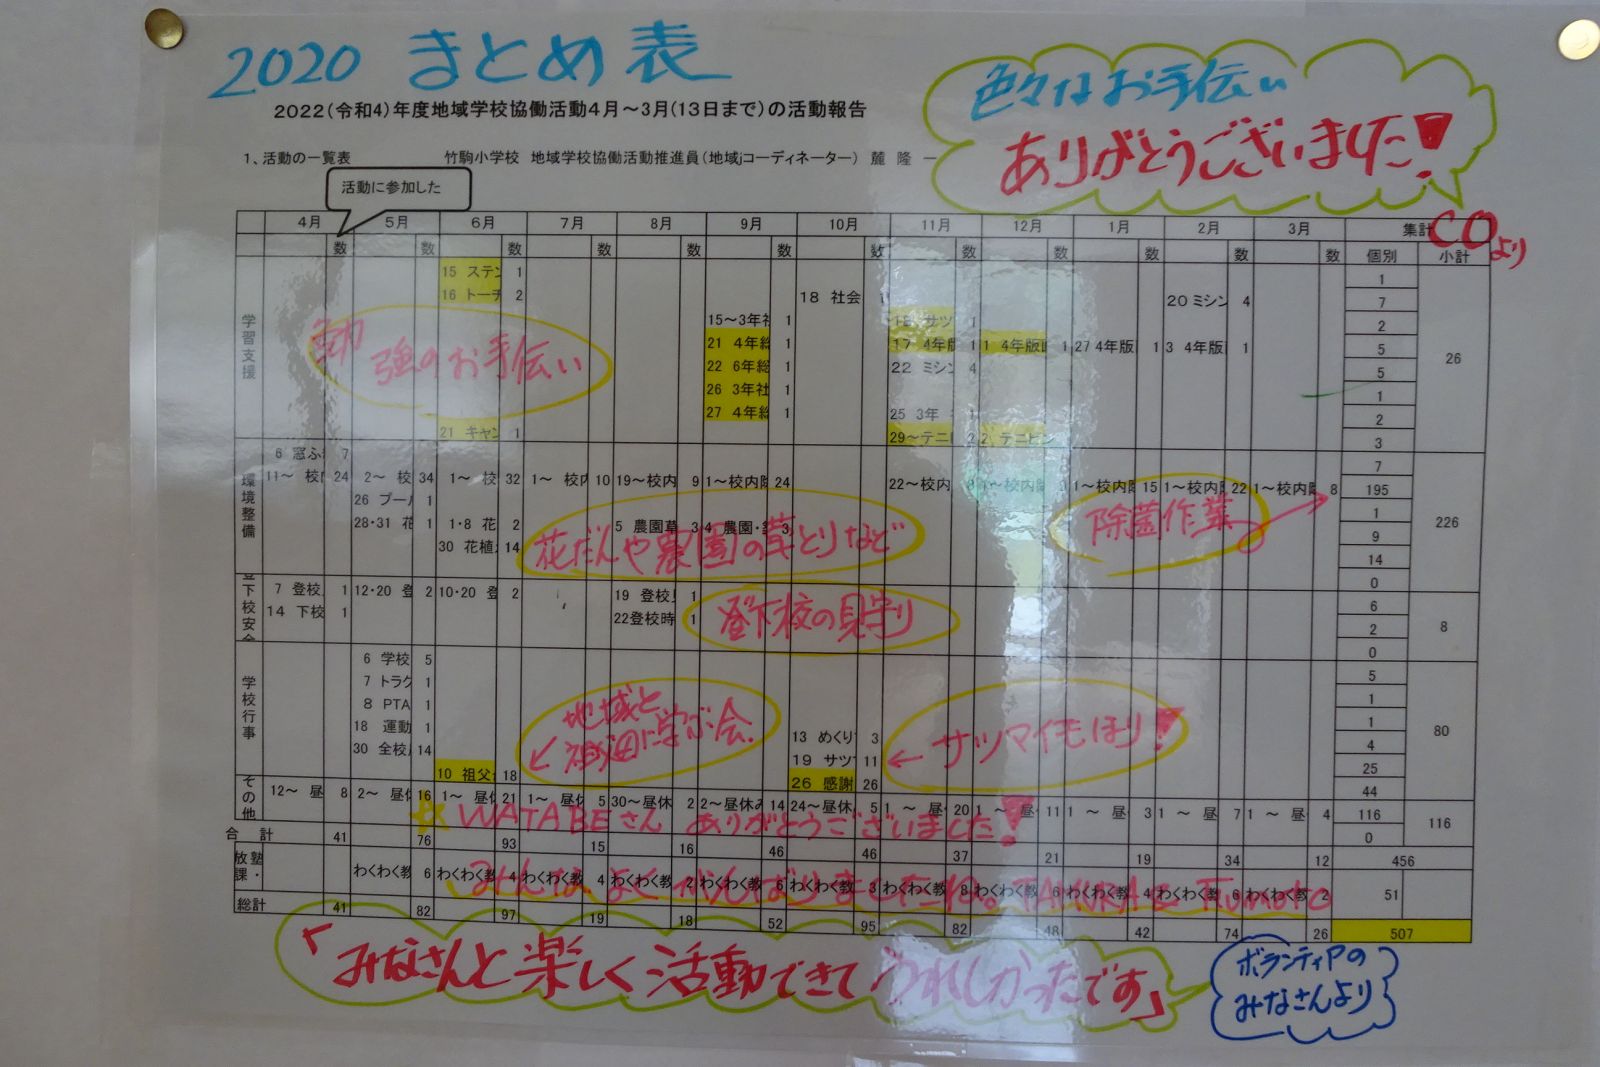 2020 まとめ表
色々なお手伝い
ありがとうございました!
COより
2022(令和4)年度地域学校協働活動4月～3月(13日まで)の活動報告
1、活動の一覧表 竹駒小学校 地域学校協働活動推進員(地域jコーディネーター) 麓 隆 一
活動に参加した
4月 5月 6月 7月 8月 9月 10月 11月 12月 1月 2月 3月 集計
数 数 数 数 数 数 数 数 数 数 数 数 個別 小計
学習支援
15 ステン 1 1
16 トーチ 2 18 社会 20 ミシン 4 7
15～3年社 1 18 サツ 1 2
21 4年総 1 17 4年版 1 1 4年版画 1 27 4年版 1 3 4年版 1 5 26
22 6年総 1 22 ミシン 4 5
26 3年社 1 1
27 4年総 1 25 3年 1 2
21 キャン 1 29～テニ 2 2 テニピン 3
勉強のお手伝い
環境整備
6 窓ふ 7 7
11～ 校内 24 2～ 校 34 1～ 校 32 1～ 校内 10 19～校内 9 1～校内 24 22～校内 8 1～校内 9 1～校内 15 1～校内 22 1～校内 8 195
26 プール 1 1
28・31 花 1 1・8 花 2 5 農園草 3 4 農園・ 3 9 226
30 花植 14 14
0
花だんや農園の草とりなど
除菌作業
登下校安全
7 登校 1 12・20 登 2 10・20 登 2 19 登校 1 6
14 下校 1 22登校時 1 2 8
0
登下校の見守り
学校行事
6 学校 5 5
7 トラク 1 1
8 PTA 1 1
18 運動 1 13 めくり 3 4 80
30 全校 14 19 サツ 11 25
10 祖父 18 26 感謝 26 44
地域と
祖父に学ぶ会
サツマイモほり!
その他
12～ 昼 8 2～ 昼休 16 1～ 昼休 21 1～ 昼休 5 30～昼休 2 2～昼休み 14 24～昼休 5 1 ～ 昼 20 1 ～ 昼 11 1 ～ 昼 3 1 ～ 昼 7 1 ～ 昼 4 116 116
0
WATABEさん ありがとうございました!
合 計 41 76 93 15 16 46 46 37 21 19 34 12 456
放課・塾 わくわく教 6 わくわく教 4 わくわく教 4 わくわく教 2 わくわく教 6 わくわく教 3 わくわく教 8 わくわく教 6 わくわく教 4 わくわく教 6 わくわく教 2 51
みんなよくがんばりましたね。
総計 41 82 97 19 18 52 95 82 48 42 74 26 507
「みなさんと楽しく活動できてうれしかったです」
ボランティアの
みなさんより